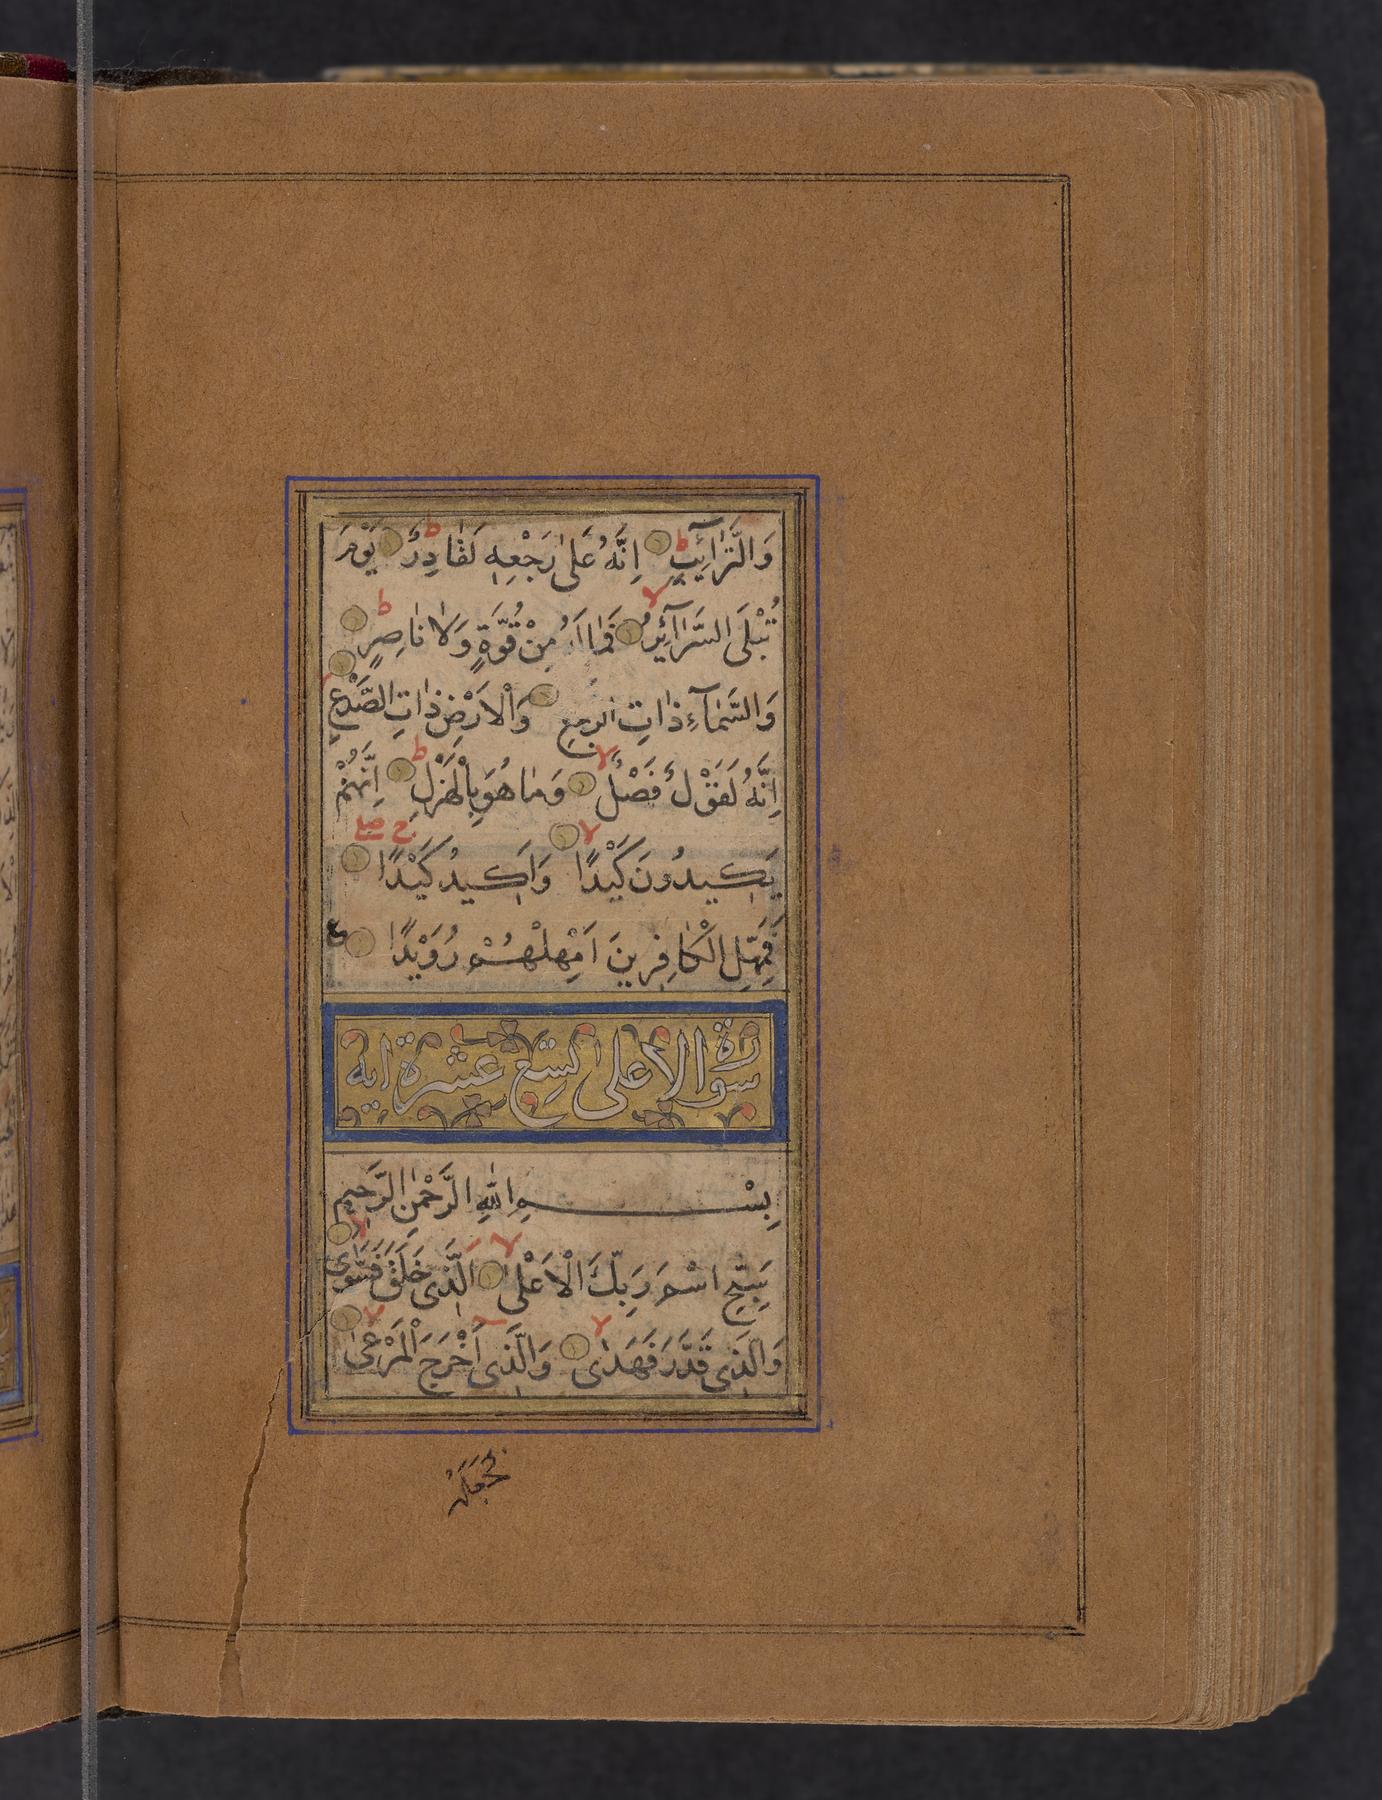 وَالتَّرَآئِبِ ط اِنَّهُ عَلٰى رَجْعِهٖ لَقَادِرٌ ط يَوْمَ
تُبْلَى السَّرَآئِرُ لا فَمَا لَهُ مِنْ قُوَّةٍ وَلَا نَاصِرٍ ط
وَالسَّمَآءِ ذَاتِ الرجع وَالْاَرْضِ ذَاتِ الصَّدْعِ لا
اِنَّهُ لَقَوْلٌ فَصْلٌ لا وَمَا هُوَ بِالْهَزْلِ ط اِنَّهُمْ
يَكِيدُونَ كَيْدًا لا وَاَكِيدُ كَيْدًا ج صلے
فَمَهِّلِ الْكَافِرِينَ اَمْهِلْهُمْ رُوَيْدًا ع
سورة الاعلى تسع عشرة اية
بِسْمِ اللّٰهِ الرَّحْمٰنِ الرَّحِيمِ
سَبِّحِ اسْمَ رَبِّكَ الْاَعْلٰى لا الَّذِى خَلَقَ فَسَوّٰى لا
وَالَّذِى قَدَّرَ فَهَدٰى لا وَالَّذِى اَخْرَجَ الْمَرْعٰى لا
فجعله